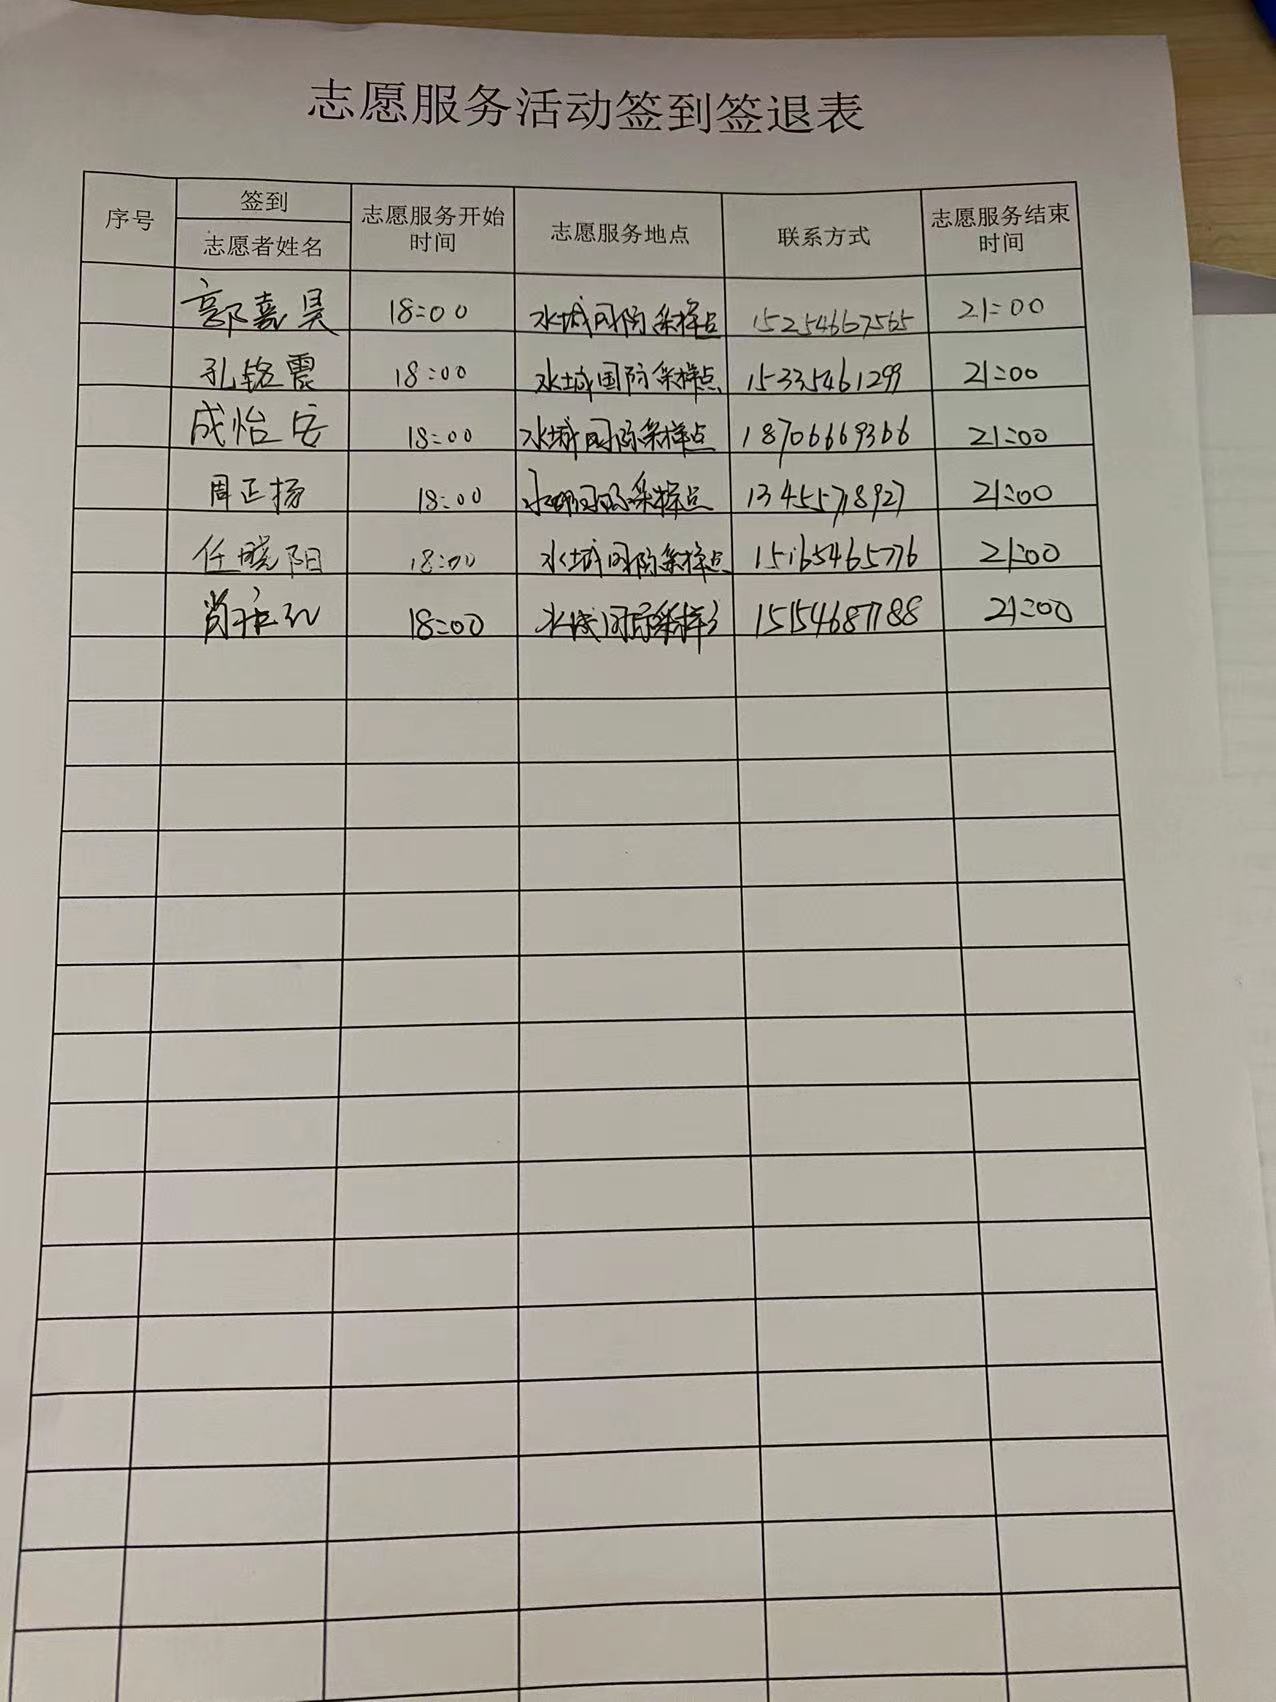 志愿服务活动签到签退表
序号 签到 志愿者姓名 志愿服务开始时间 志愿服务地点 联系方式 志愿服务结束时间
郭嘉昊 18:00 水城国际采样点 15254667565 21:00
孔铭震 18:00 水城国际采样点 15335461299 21:00
成怡安 18:00 水城国际采样点 18706669366 21:00
周正扬 18:00 水城国际采样点 13455718927 21:00
任晓阳 18:00 水城国际采样点 15165465776 21:00
肖 18:00 水城国际采样 15154687188 21:00